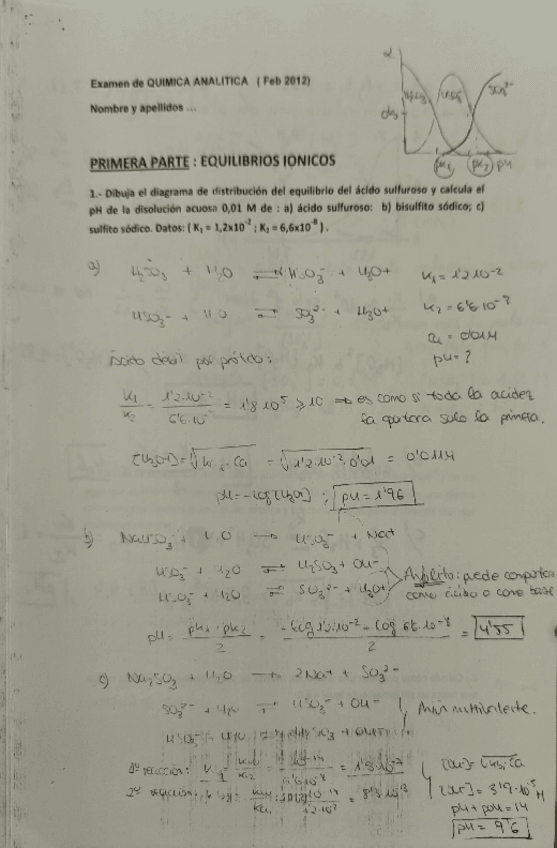 Examen de QUIMICA ANALITICA ( Feb 2012)
Nombre y apellidos ...
α
pK₁ pK₂ pH
PRIMERA PARTE : EQUILIBRIOS IONICOS
1.- Dibuja el diagrama de distribución del equilibrio del ácido sulfuroso y calcula el
pH de la disolución acuosa 0,01 M de : a) ácido sulfuroso: b) bisulfito sódico; c)
sulfito sódico. Datos: ( K₁ = 1,2x10⁻² ; K₂ = 6,6x10⁻⁸ ).
a) H₂SO₃ + H₂O ⇌ HSO₃⁻ + H₃O+ K₁ = 1'2·10⁻²
HSO₃⁻ + H₂O ⇌ SO₃²⁻ + H₃O+ K₂ = 6'6·10⁻⁸
Ca = 0'01M
pH = ?
Ácido débil poliprótido:
K₁/K₂ = 1'2·10⁻²/6'6·10⁻⁸ = 1'8·10⁵ ≥ 10 → es como si toda la acidez
la aportara solo la primera.
[H₃O+] = √K₁·Ca = √1'2·10⁻²·0'01 = 0'0114
pH = -log[H₃O+] ; pH = 1'96
b) NaHSO₃ + H₂O → HSO₃⁻ + Na+
HSO₃⁻ + H₂O ⇌ H₂SO₃ + OH⁻
HSO₃⁻ + H₂O ⇌ SO₃²⁻ + H₃O+
Anfolito: puede comportarse
como ácido o como base
pH = pK₁ + pK₂/2 = -log 1'2·10⁻² - log 6'6·10⁻⁸/2 = 4'55
c) Na₂SO₃ + H₂O → 2Na+ + SO₃²⁻
SO₃²⁻ + H₂O ⇌ HSO₃⁻ + OH⁻
HSO₃⁻ + H₂O ⇌ H₂SO₃ + OH⁻
1ª reacción:
2ª reacción:
[OH⁻] = √Kb₁·Ca
[OH⁻] = 3'9·10⁻⁵ M
pH + pOH = 14
pH = 9'6